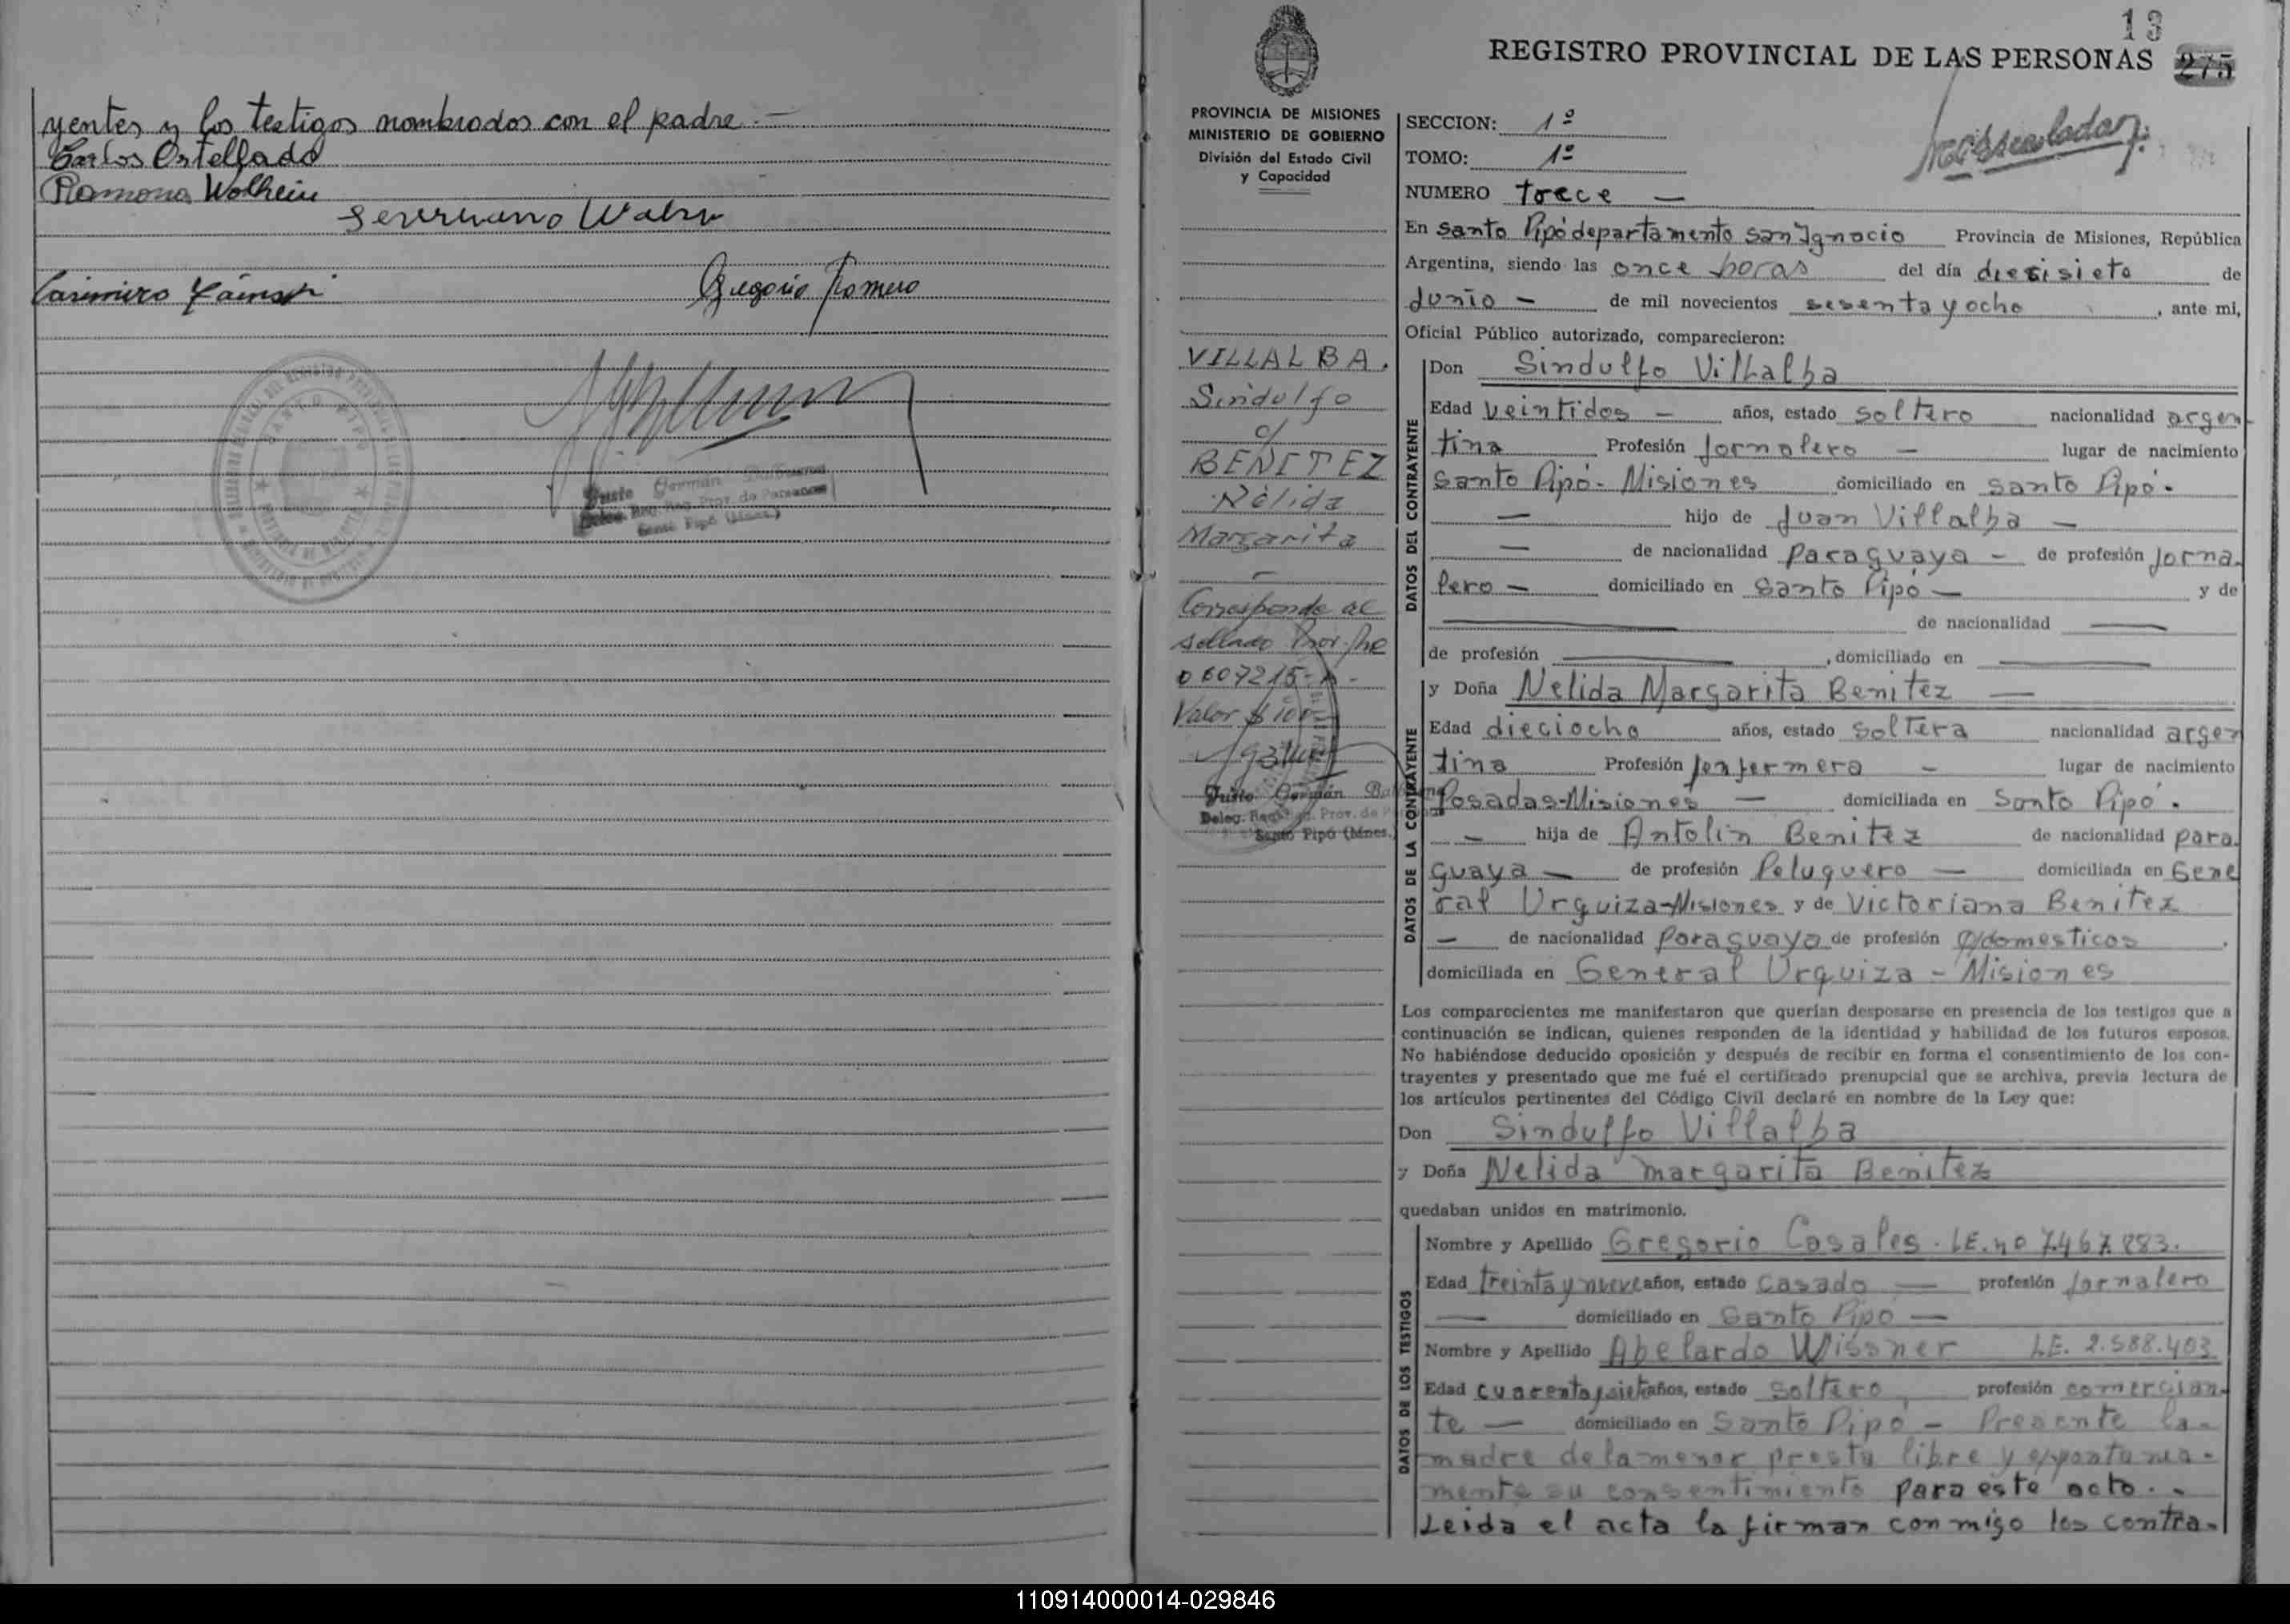 yentes y los testigos nombrados con el padre.—
Carlos Ostellado
Ramona Wolhein
Casimiro
Gregorio Romero
Justo Germán
Deleg. Reg. Prov. de Personas
Santo Pipó (Mnes.)
13
REGISTRO PROVINCIAL DE LAS PERSONAS
275
PROVINCIA DE MISIONES
MINISTERIO DE GOBIERNO
División del Estado Civil
y Capacidad
VILLALBA,
Sindulfo
c/
BENITEZ
Nélida
Margarita
—
Corresponde al
sellado
Valor $ 100
Justo Germán
Deleg. Prov. de
Santo Pipó (Mnes.)
SECCION: 1º
TOMO: 1º
NUMERO trece —
En Santo Pipó departamento San Ignacio Provincia de Misiones, República
Argentina, siendo las once horas del día diesisiete de
Junio — de mil novecientos sesenta y ocho , ante mi,
Oficial Público autorizado, comparecieron:
DATOS DEL CONTRAYENTE
Don Sindulfo Villalba
Edad veintidos — años, estado soltero nacionalidad argen
tina Profesión Jornalero — lugar de nacimiento
Santo Pipó - Misiones domiciliado en Santo Pipó -
— hijo de Juan Villalba —
— de nacionalidad Paraguaya — de profesión Jorna-
lero — domiciliado en Santo Pipó — y de
— de nacionalidad —
de profesión — , domiciliado en —
DATOS DE LA CONTRAYENTE
y Doña Nelida Margarita Benitez —
Edad dieciocho años, estado Soltera nacionalidad argen
tina Profesión Jenfermera — lugar de nacimiento
Posadas-Misiones — domiciliada en Santo Pipó.
— hija de Antolin Benitez de nacionalidad para-
guaya — de profesión Peluquero — domiciliada en Gene
ral Urquiza-Misiones y de Victoriana Benitez
— de nacionalidad Paraguaya de profesión Q/domesticos
domiciliada en General Urquiza - Misiones
Los comparecientes me manifestaron que querían desposarse en presencia de los testigos que a
continuación se indican, quienes responden de la identidad y habilidad de los futuros esposos.
No habiéndose deducido oposición y después de recibir en forma el consentimiento de los con-
trayentes y presentado que me fué el certificado prenupcial que se archiva, previa lectura de
los artículos pertinentes del Código Civil declaré en nombre de la Ley que:
Don Sindulfo Villalba
y Doña Nelida margarita Benitez
quedaban unidos en matrimonio.
DATOS DE LOS TESTIGOS
Nombre y Apellido Gregorio Casales. LE. nº 7.467.883.
Edad treinta y nueve años, estado Casado — profesión Jornalero
— domiciliado en Santo Pipó —
Nombre y Apellido Abelardo Wissner LE. 2.588.403
Edad cuarenta y siete años, estado Soltero profesión comercian-
te — domiciliado en Santo Pipó — Presente la-
madre de la menor presta libre y espontanea-
mente su consentimiento para este acto. -
Leida el acta la firman conmigo los contra-
110914000014-029846